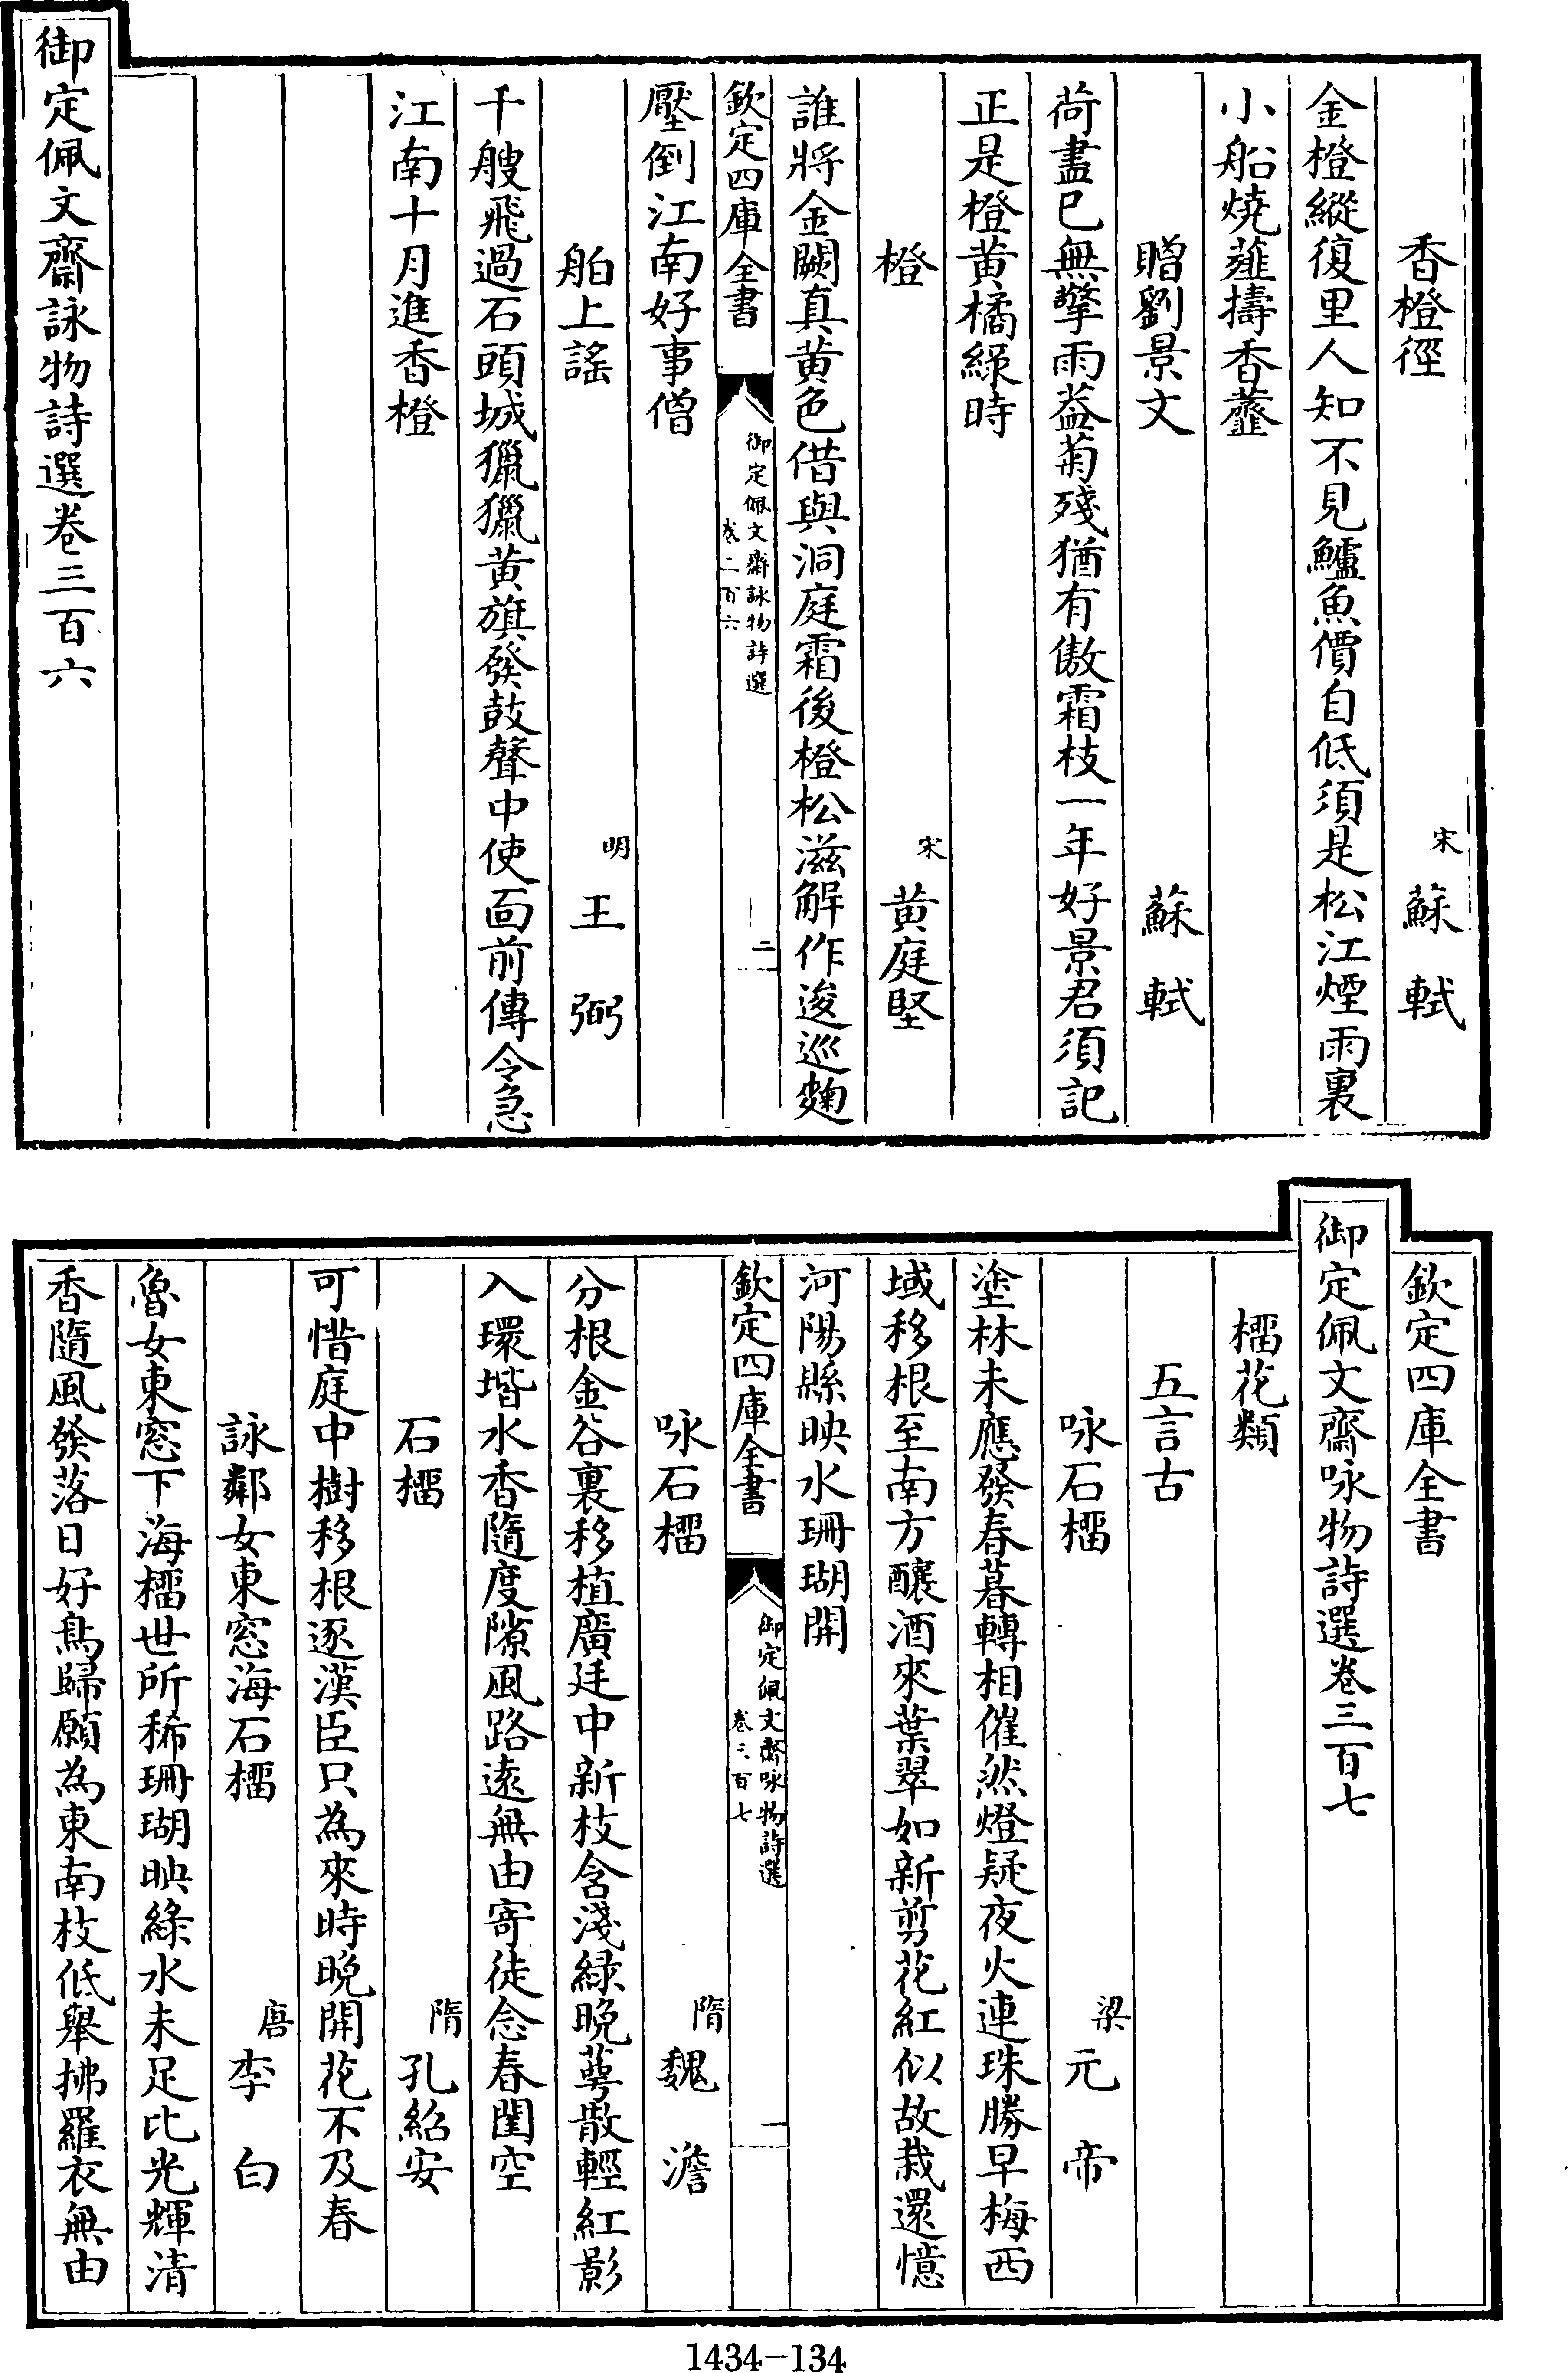 香橙徑
宋
蘇軾
金橙縱復里人知不見鱸魚價自低須是松江煙雨裏
小船燒薤擣香虀
贈劉景文
蘇軾
荷盡已無擎雨葢菊殘猶有傲霜枝一年好景君須記
正是橙黄橘綠時
橙
宋
黄庭堅
誰將金闕真黄色借與洞庭霜後橙松滋解作逡巡麴
欽定四庫全書
御定佩文齋詠物詩選
卷二百六
二
壓倒江南好事僧
舶上謡
明
王弼
千艘飛過石頭城獵獵黄旗發鼓聲中使面前傳令急
江南十月進香橙
御定佩文齋詠物詩選卷三百六
欽定四庫全書
御定佩文齋咏物詩選卷三百七
橊花類
五言古
咏石橊
梁
元帝
塗林未應發春暮轉相催然燈疑夜火連珠勝早梅西
域移根至南方釀酒來葉翠如新剪花紅似故栽還憶
河陽縣映水珊瑚開
欽定四庫全書
御定佩文齋咏物詩選
卷三百七
一
咏石橊
隋
魏澹
分根金谷裏移植廣廷中新枝含淺綠晚萼散輕紅影
入環堦水香隨度隙風路遠無由寄徒念春閨空
石橊
隋
孔紹安
可惜庭中樹移根逐漢臣只為來時晚開花不及春
詠鄰女東窓海石橊
唐
李白
魯女東窓下海橊世所稀珊瑚映綠水未足比光輝清
香隨風發落日好鳥歸願為東南枝低舉拂羅衣無由
1434-134